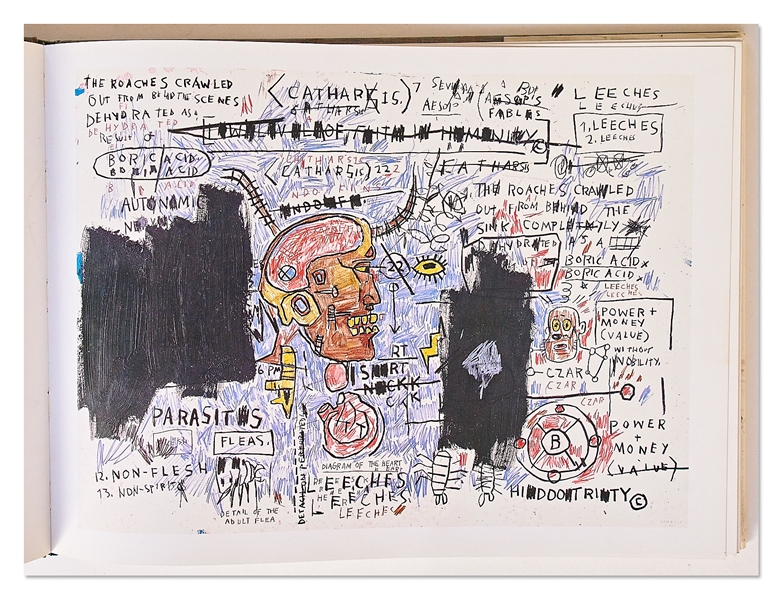 THE ROACHES CRAWLED
OUT FROM BEHIND THE SCENES
DEHYDRATED AS A
DEHYDRATED
RESULT OF
BORIC ACID.
BORIC ACID
ACID
AUTONOMIC
(CATHARSIS.)7
CATHARSIS.
AESOP
(AESOP'S
FABLES
LEECHES
LEECHES
1. LEECHES
2. LEECHES
LOW LEVEL OF FAITH IN HUMANITY ©
CATHARSIS
(CATHARSIS) 222
CATHARSIS
THE ROACHES CRAWLED
OUT FROM BEHIND THE
SINK COMPLETELY
DEHYDRATED AS A
BORIC ACID
BORIC ACID
LEECHES
LEECHES
22
6 PM
RT
POWER +
MONEY
(VALUE)
WITHOUT
NOBILITY.
CZAR
CZAR
CZAR
PARASITES
FLEAS.
12. NON-FLESH
13. NON-SPIRITS
DETAIL OF THE
ADULT FLEA.
DIAGRAM OF THE HEART
LEECHES
LEECHES
LEECHES
B
POWER +
MONEY
(VALUE)
HINDOO TRINTY ©